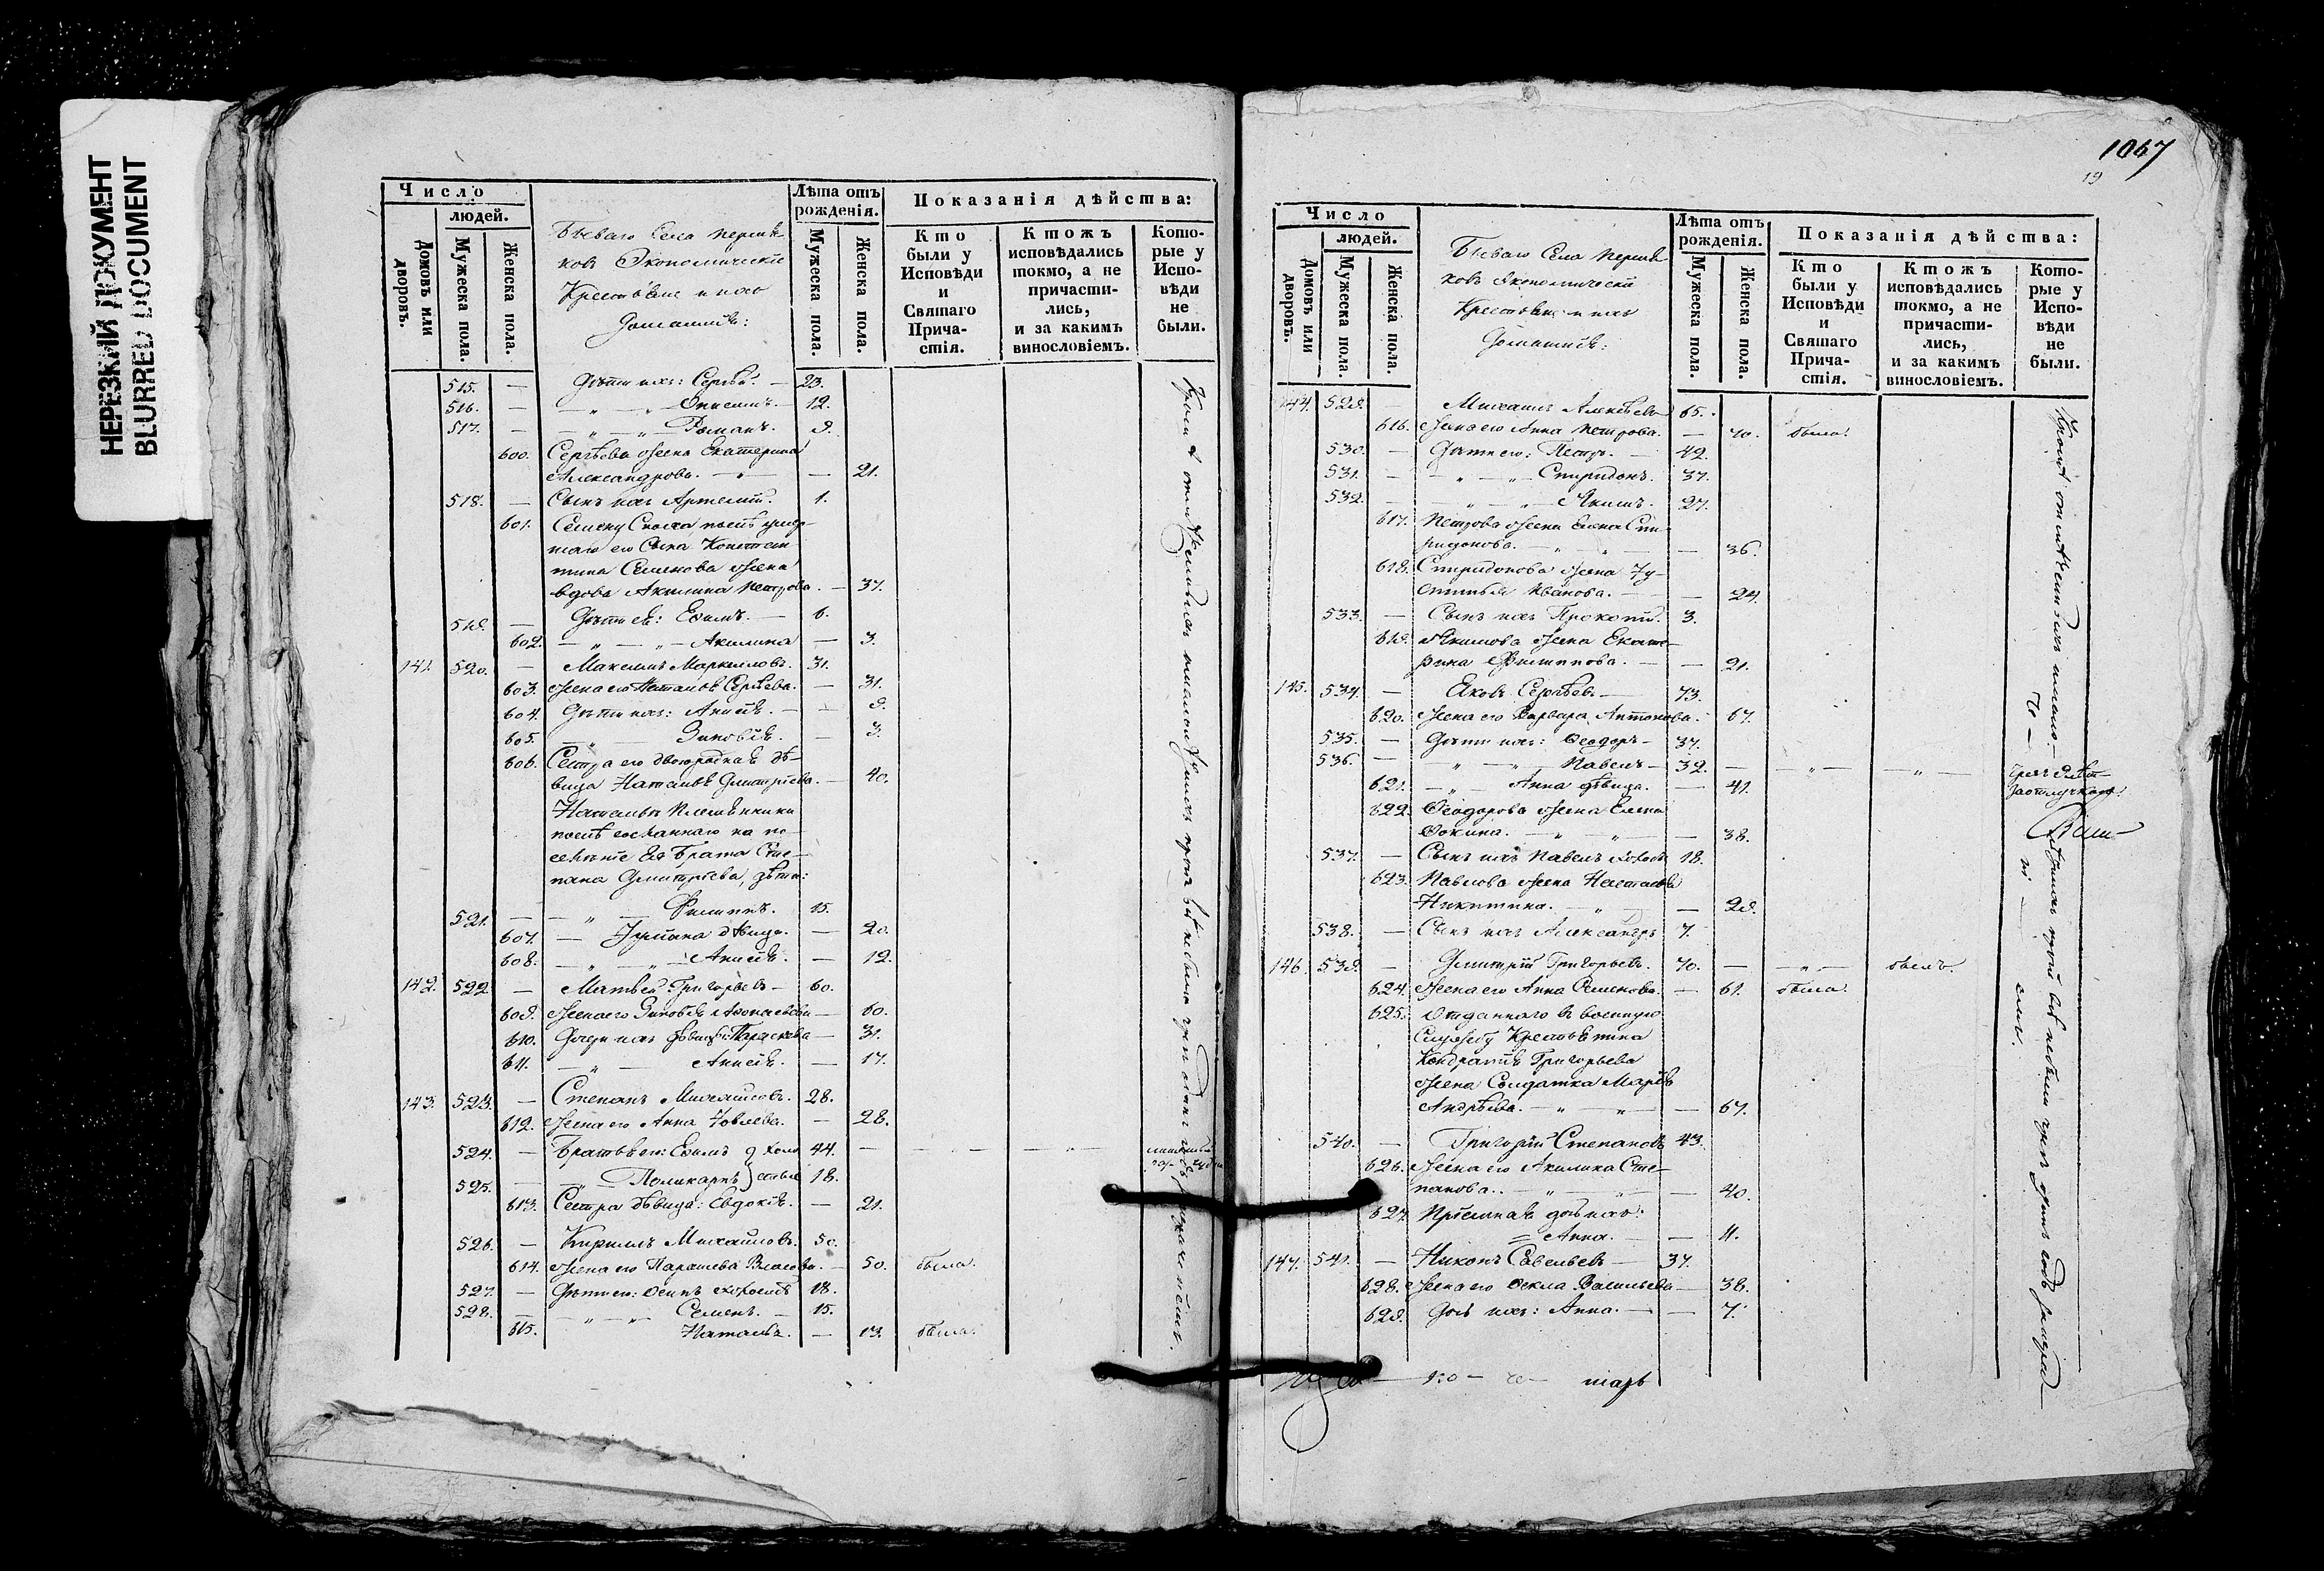 НЕРЕЗКИЙ ДОКУМЕНТ
BLURRED DOCUMENT
Число
людей.
Домовъ или дворовъ.
Мужеска пола.
Женска пола.
Бывшаго Села
ковъ Экономическіе
Крестьяне и ихъ
Домашніе:
Лѣта отъ рожденія.
Мужеска пола.
Женска пола.
Показанія дѣйства:
Кто были у Исповѣди и Святаго Причастія.
Ктожъ исповѣдались токмо, а не причастились, и за какимъ винословіемъ.
Которые у Исповѣди не были.
515. — Дѣти ихъ: Сергѣй. — 23.
516. — — „ — „ — 12.
517. — — „ — „ Романъ. 9.
600. Сергѣева жена Екатерина
Александрова. — „ — — 21.
518. — Сынъ ихъ Артемій. 1.
601. послѣ умер-
шаго его Сына Констан-
тина Семенова жена
вдова Акилина Петрова. — 37.
519. — Дѣти ея: Ефимъ. — 6.
602. — „ — „ — Акилина — 3.
141. 520. — Максимъ Маркиловъ. 31.
603. жена его Наталья Сергѣева. — 31.
604. Дѣти ихъ: Анисія. — — 9.
605. — „ — Зиновія. — 3.
606. Сестра его двоюродная дѣ-
вица Наталья Дмитріева. — 40.
Натальи племянники
послѣ сосланнаго на по-
селеніе Ея брата Сте-
пана Дмитріева, дѣти:
521. — — „ — Филиппъ. 15.
607. — Іуліана дѣвица. — 20.
608. — „ — „ — Анисія. — 12.
142. 522. — Матвей Григорьевъ — 60.
609. жена его Зиновія — 60.
610. Дочери ихъ Параскева — 31.
611. — „ — Анисія. — 17.
143. 523. — Степанъ Михайловъ. 28.
612. жена его Анна Іовлева. — 28.
524. — Братья его: Ефимъ холо 44. — — — „ —
525. — — „ — Поликарпъ } стые 18.
613. Сестра дѣвица: Евдокія. — 21.
526. — Кирилъ Михайловъ. 50.
614. жена его Парасева Власова. — 50. была.
527. — Дѣти его: Осипъ холостъ 18.
528. — — „ — „ — Семенъ. — 15.
615. Наталья. — 13. была.
1067
19
Число
людей.
Домовъ или дворовъ.
Мужеска пола.
Женска пола.
Бывшаго Села
ковъ Экономическіе
Крестьяне и ихъ
Домашніе:
Лѣта отъ рожденія.
Мужеска пола.
Женска пола.
Показанія дѣйства:
Кто были у Исповѣди и Святаго Причастія.
Ктожъ исповѣдались токмо, а не причастились, и за какимъ винословіемъ.
Которые у Исповѣди не были.
144. 529. — Михаилъ Алексѣевъ 65.
616. жена его Анна Петрова. — 70. была.
530. — Дѣти его: Петръ. — 42.
531. — — „ — „ — Спиридонъ. 37.
532. — — „ — „ — Якимъ. 27.
617. Петрова жена Елена Спи-
ридонова. — „ — „ — — 36.
618. Спиридонова жена Іу-
стинья Иванова. — — 24.
533. — Сынъ ихъ Прокопій. 3.
619. Якимова жена Екате-
рина Филиппова. — — 21.
145. 534. — Яковъ Сергѣевъ. — 73.
620. жена его Варвара Антонова. — 67.
535. — Дѣти ихъ: Ѳеодоръ — 37.
536. — — „ — „ — Павелъ — 32. — — „ — — „ —
621. — „ — Анна дѣвица. — 41.
622. Ѳеодорова жена Елена
Ѳокина. — „ — „ — — 38.
537. — Сынъ ихъ Павелъ холостъ 18.
623. Павлова жена Наталья
Никитина. — „ — — 29.
538. — Сынъ ихъ Александръ 7.
146. 539. — Дмитрій Григорьевъ. 70. — — „ — былъ.
624. жена его Анна Семенова. — 61. была.
625. Отданнаго въ военную
Службу Крестьянина
Кондратія Григорьева
жена Солдатка Марія
Андрѣева. — „ — „ — — 67.
540. — Григорій Степановъ 43.
626. жена его Акилина Сте-
панова. — „ — „ — — 40.
627. Пріемная дочь ихъ:
= Анна. — — 11.
147. 541. — Никонъ Савельевъ — 37.
628. жена его Ѳекла Васильева — 38.
629. Дочь ихъ: Анна. — — 7.